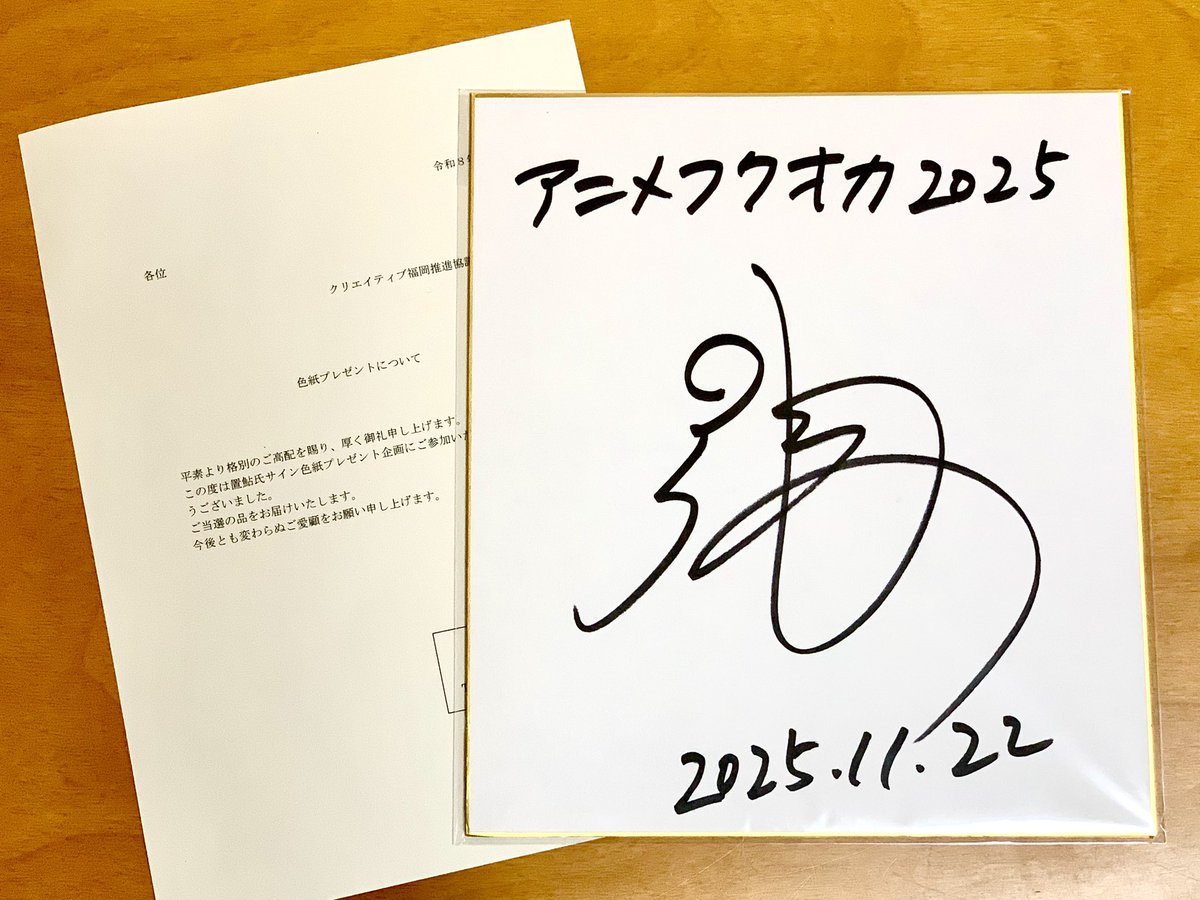 令和8年
各位
クリエイティブ福岡推進協議
色紙プレゼントについて
平素より格別のご高配を賜り、厚く御礼申し上げます。
この度は置鮎氏サイン色紙プレゼント企画にご参加いた
うございました。
ご当選の品をお届けいたします。
今後とも変わらぬご愛顧をお願い申し上げます。
アニメフクオカ2025
2025.11.22